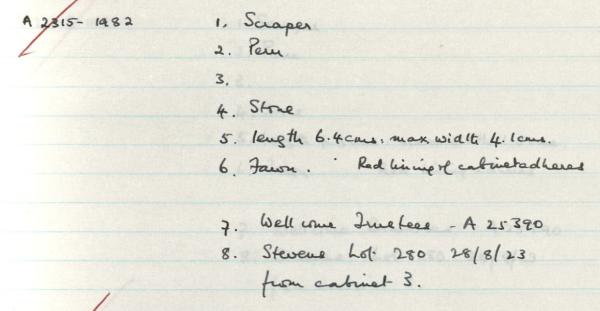 A 2315- 1982 1. Scraper
2. Peru
3.
4. Stone
5. length 6.4cms. max width 4.1cms.
6. Fawn. Red lining of cabinet adheres
7. Wellcome Trustees - A 25390
8. Stevens Lot 280 28/8/23
from cabinet 3.